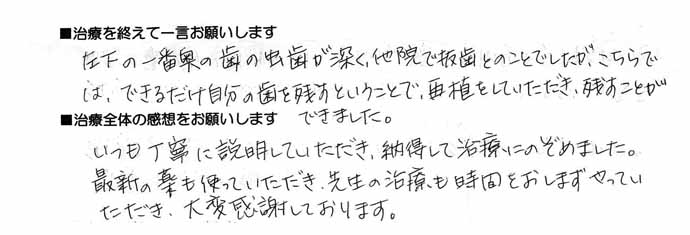 ■治療を終えて一言お願いします
左下の一番奥の歯の虫歯が深く、他院で抜歯とのことでしたが、こちらで
は、できるだけ自分の歯を残すということで、再植をしていただき、残すことが
できました。
■治療全体の感想をお願いします
いつも丁寧に説明していただき、納得して治療にのぞめました。
最新の薬も使っていただき、先生の治療も時間をおしまずやってい
ただき、大変感謝しております。